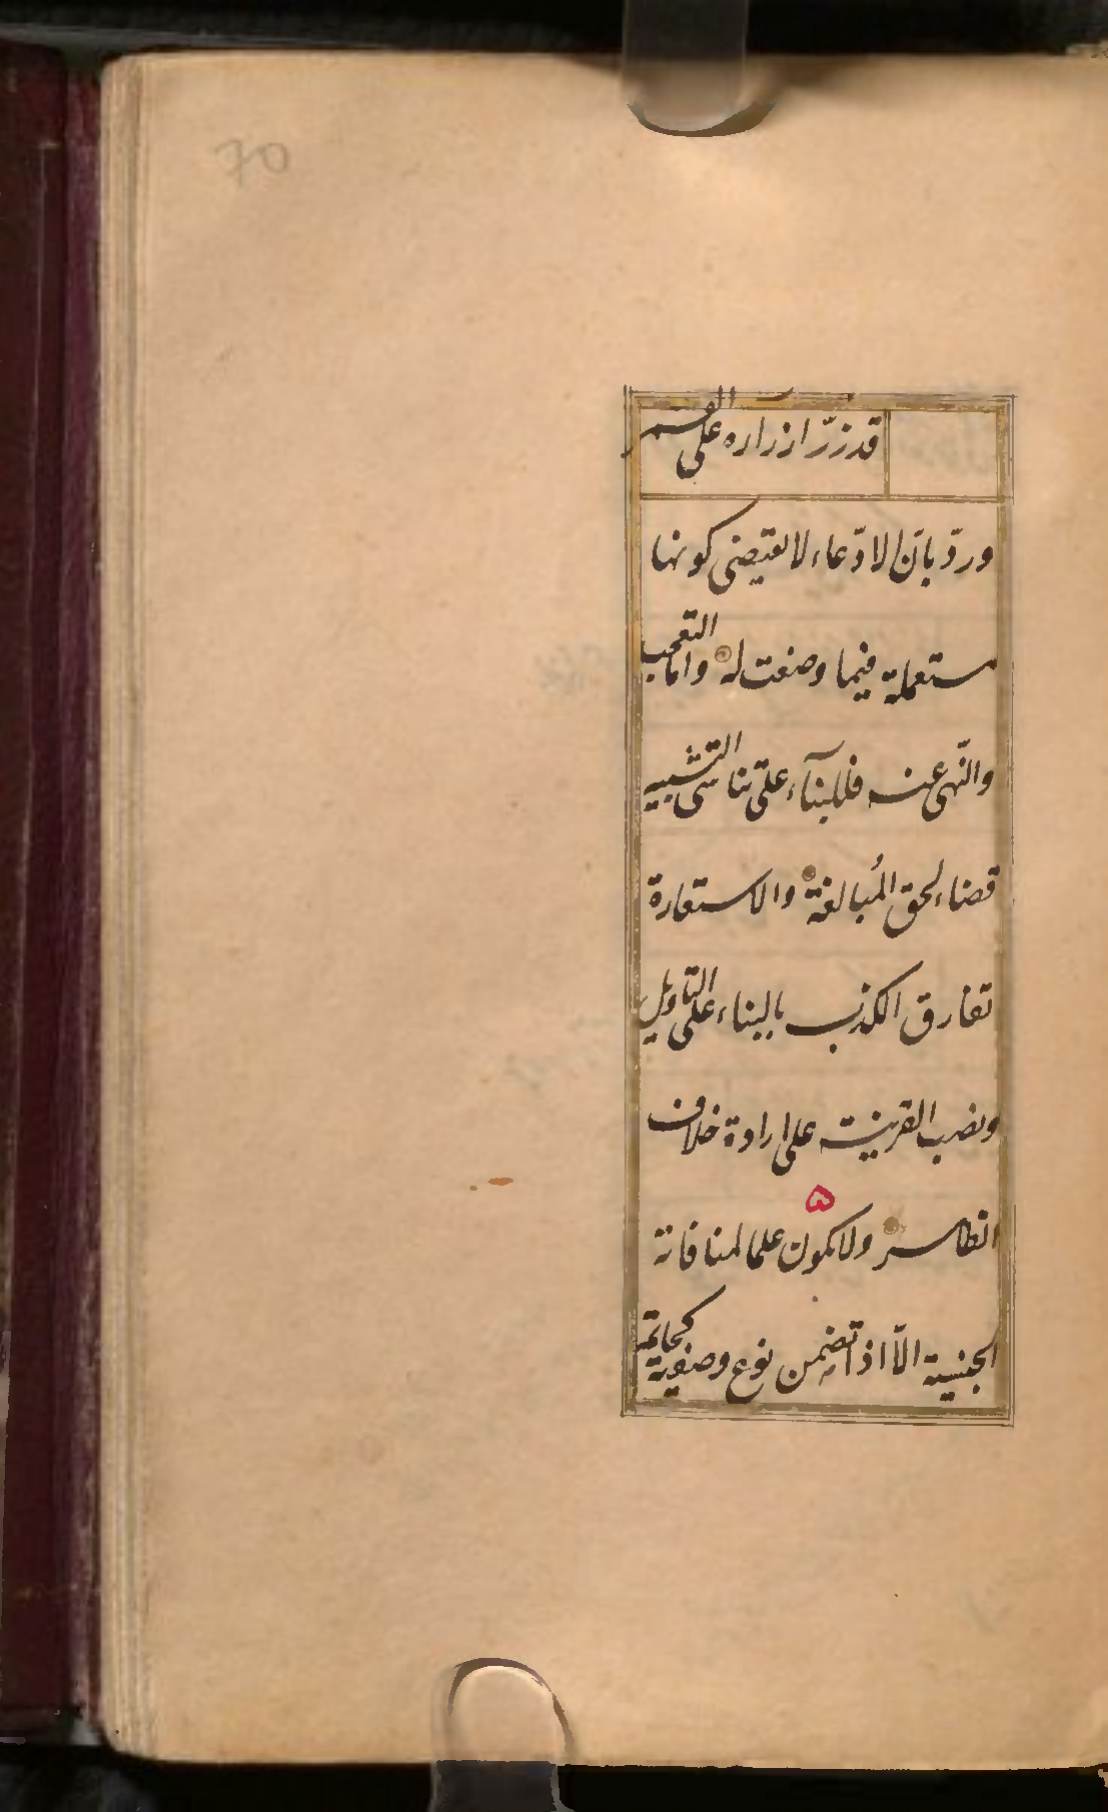 70
قد زرّ ازراره على القمر
وردّ بانّ الادّعاء لا يقتضى كونها
مستعملة فيما وضعت له وامّا التعجب
والنّهى عنه فللبنآء على تناسى التّشبيه
قضاء لحق المُبالغة والاستعارة
تفارق الكذب بالبناء على التاويل
ونصب القرينة على ارادة خلاف
الظاهر ۵ ولا يكون علما لمنافاته
الجنسية الّا اذا تضمن نوع وصفية كحاتم